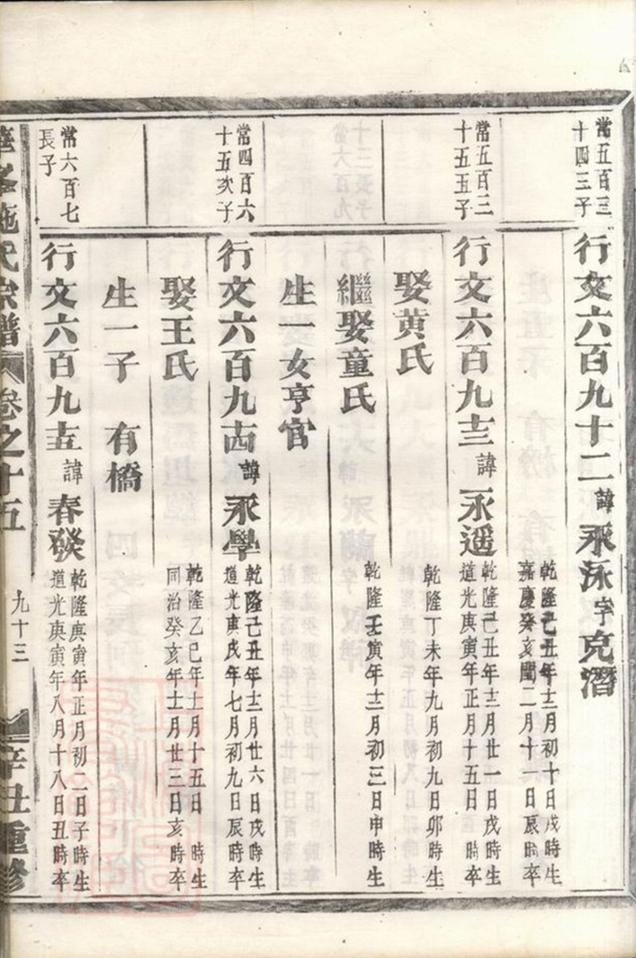 常五百三
十四三子
行文六百九十二 諱 永泳 字 克潛
乾隆己丑年十二月初十日戌時生
嘉慶癸亥閏二月十一日辰時卒
常五百三
十五五子
行文六百九十三 諱 永遥
乾隆己丑年十二月廿一日戌時生
道光庚寅年正月十五日 時卒
娶黄氏
乾隆丁未年九月初九日卯時生
繼娶童氏
乾隆壬寅年十二月初三日申時生
生一女亨官
常四百六
十五次子
行文六百九十四 諱 永學
乾隆己丑年十二月廿六日戌時生
道光庚戌年七月初九日辰時卒
娶王氏
乾隆乙巳年十一月十五日 時生
同治癸亥年十一月廿三日亥時卒
生一子 有橋
常六百七
長子
行文六百九十五 諱 春發
乾隆庚寅年正月初一日子時生
道光庚寅年八月十八日丑時卒
施氏宗譜 卷之十五 九十三 辛丑重修